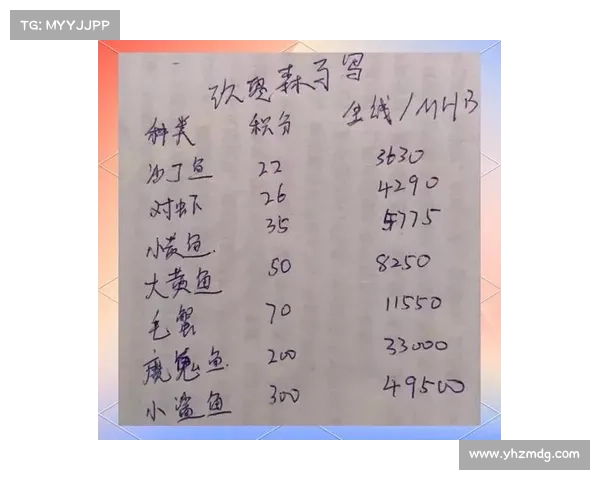 TG: MYYJJPP
玖恩森马写
种类 积分 金线/MHB
沙丁鱼 22 3630
对虾 26 4290
小黄鱼 35 5775
大黄鱼 50 8250
毛蟹 70 11550
魔鬼鱼 200 33000
小鲨鱼 300 49500
www.yhzmdg.com